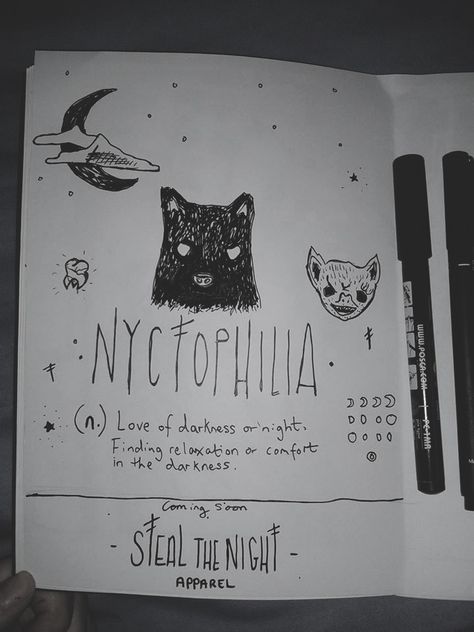 NYCTOPHILIA
(n.) Love of darkness or night.
Finding relaxation or comfort
in the darkness.
Coming Soon
- STEAL THE NIGHT -
APPAREL
WWW.POSCA.COM
PC-1MR